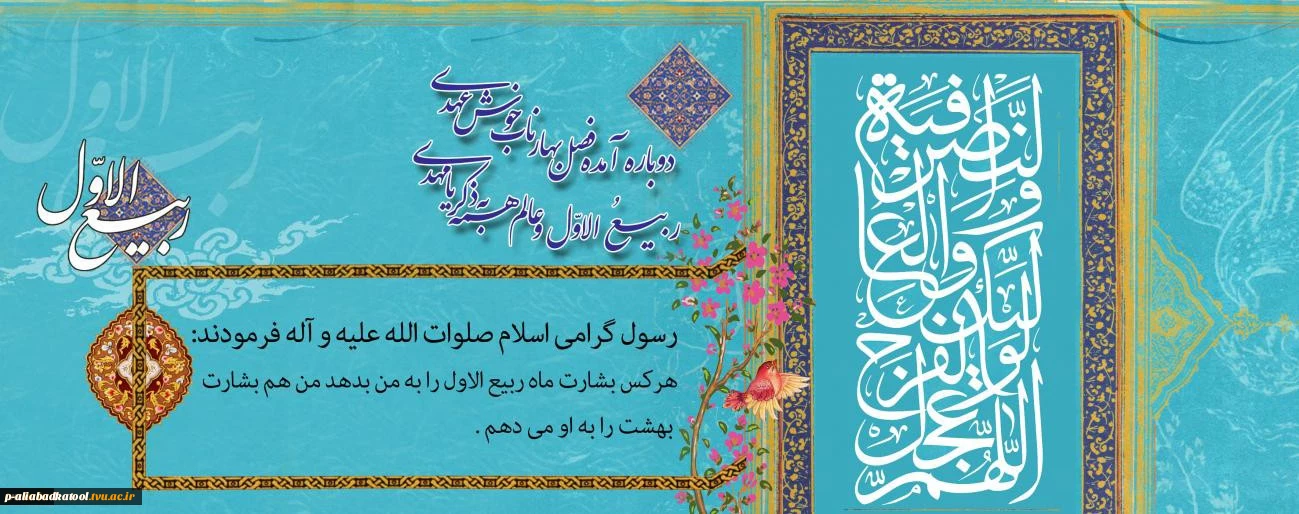 اللّهم عجّل لولیک الفرج والعافیة والنّصر
دوباره آمده فصل بهار ناب خوش عهدی
ربیعُ الاوّل و عالم همه به ذکر یا مهدی
ربیع الاوّل
ربیع الاوّل
رسول گرامی اسلام صلوات الله علیه و آله فرمودند:
هرکس بشارت ماه ربیع الاول را به من بدهد من هم بشارت
بهشت را به او می دهم .
p-aliabadkatool.tvu.ac.ir